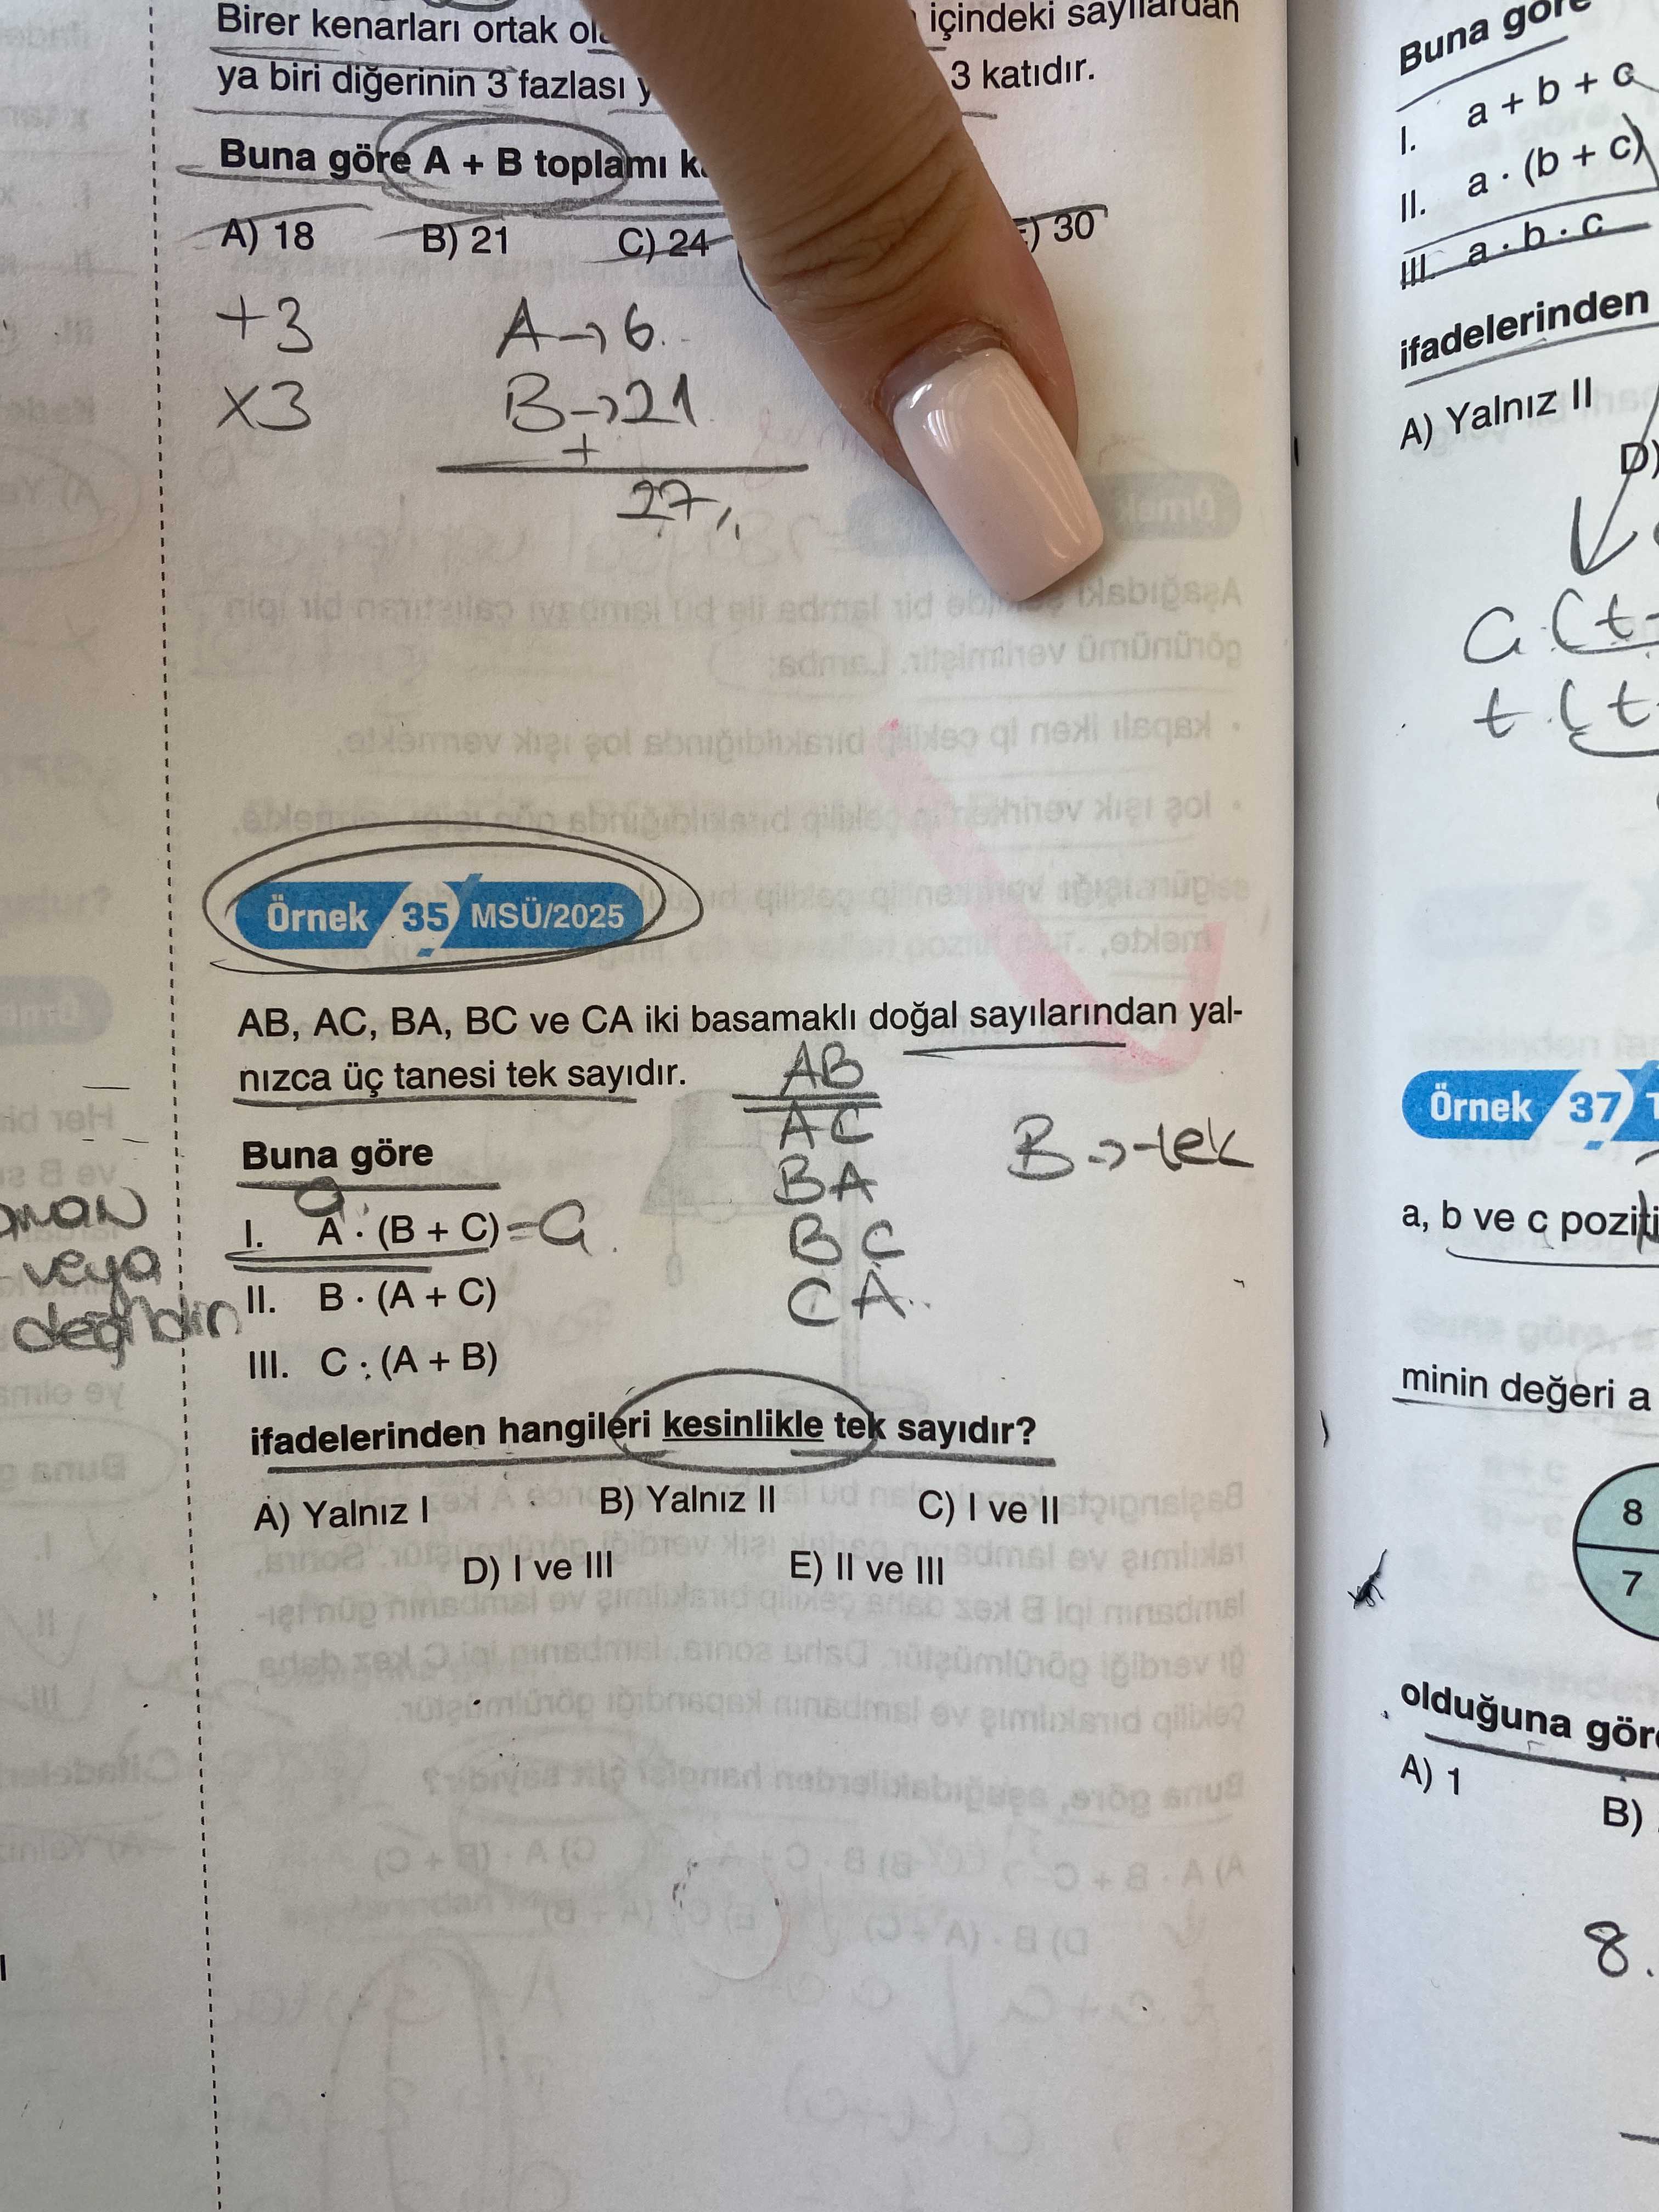 Birer kenarları ortak
içindeki sayılardan
ya biri diğerinin 3 fazlası
3 katıdır.
Buna göre A + B toplamı
A) 18 B) 21 C) 24
) 30
+3 A→6
x3 B→21
+
27
Örnek 35 MSÜ/2025
AB, AC, BA, BC ve CA iki basamaklı doğal sayılarından yal-
nızca üç tanesi tek sayıdır.
AB
AC
BA
BC
CA
B→tek
Buna göre
I. A · (B + C)
II. B · (A + C)
III. C · (A + B)
ifadelerinden hangileri kesinlikle tek sayıdır?
A) Yalnız I B) Yalnız II C) I ve II
D) I ve III E) II ve III
veya
değildir
Buna göre
I. a + b + c
II. a · (b + c)
III. a · b · c
ifadelerinden
A) Yalnız II
D)
Örnek 37
a, b ve c
minin değeri a
8
7
olduğuna
A) 1
B)
8.